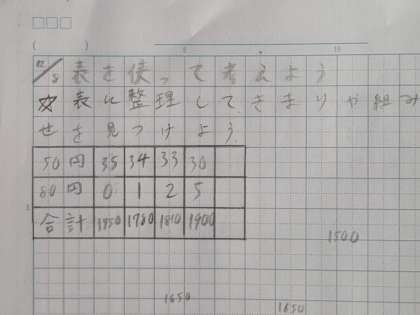 12/8 表を使って考えよう
表に整理してきまりや組み
せを見つけよう
50円 35 34 33 30
80円 0 1 2 5
合計 1750 1780 1810 1900
1500
1650
1650